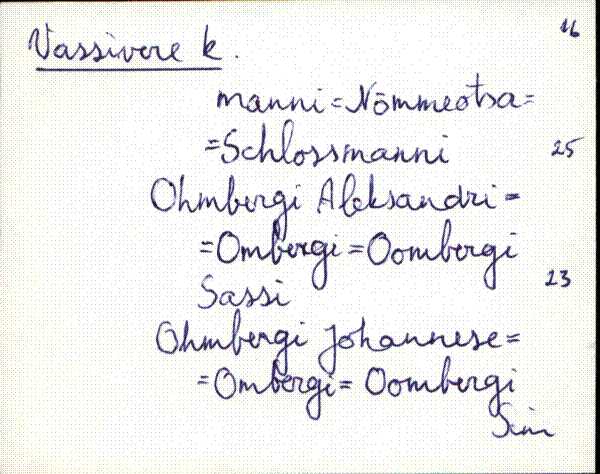 16
Vassivere k.
manni=Nõmmeotsa=
=Schlossmanni 25
Ohmbergi Aleksandri=
=Ombergi=Oombergi
Sassi 23
Ohmbergi Johannese=
=Ombergi=Oombergi